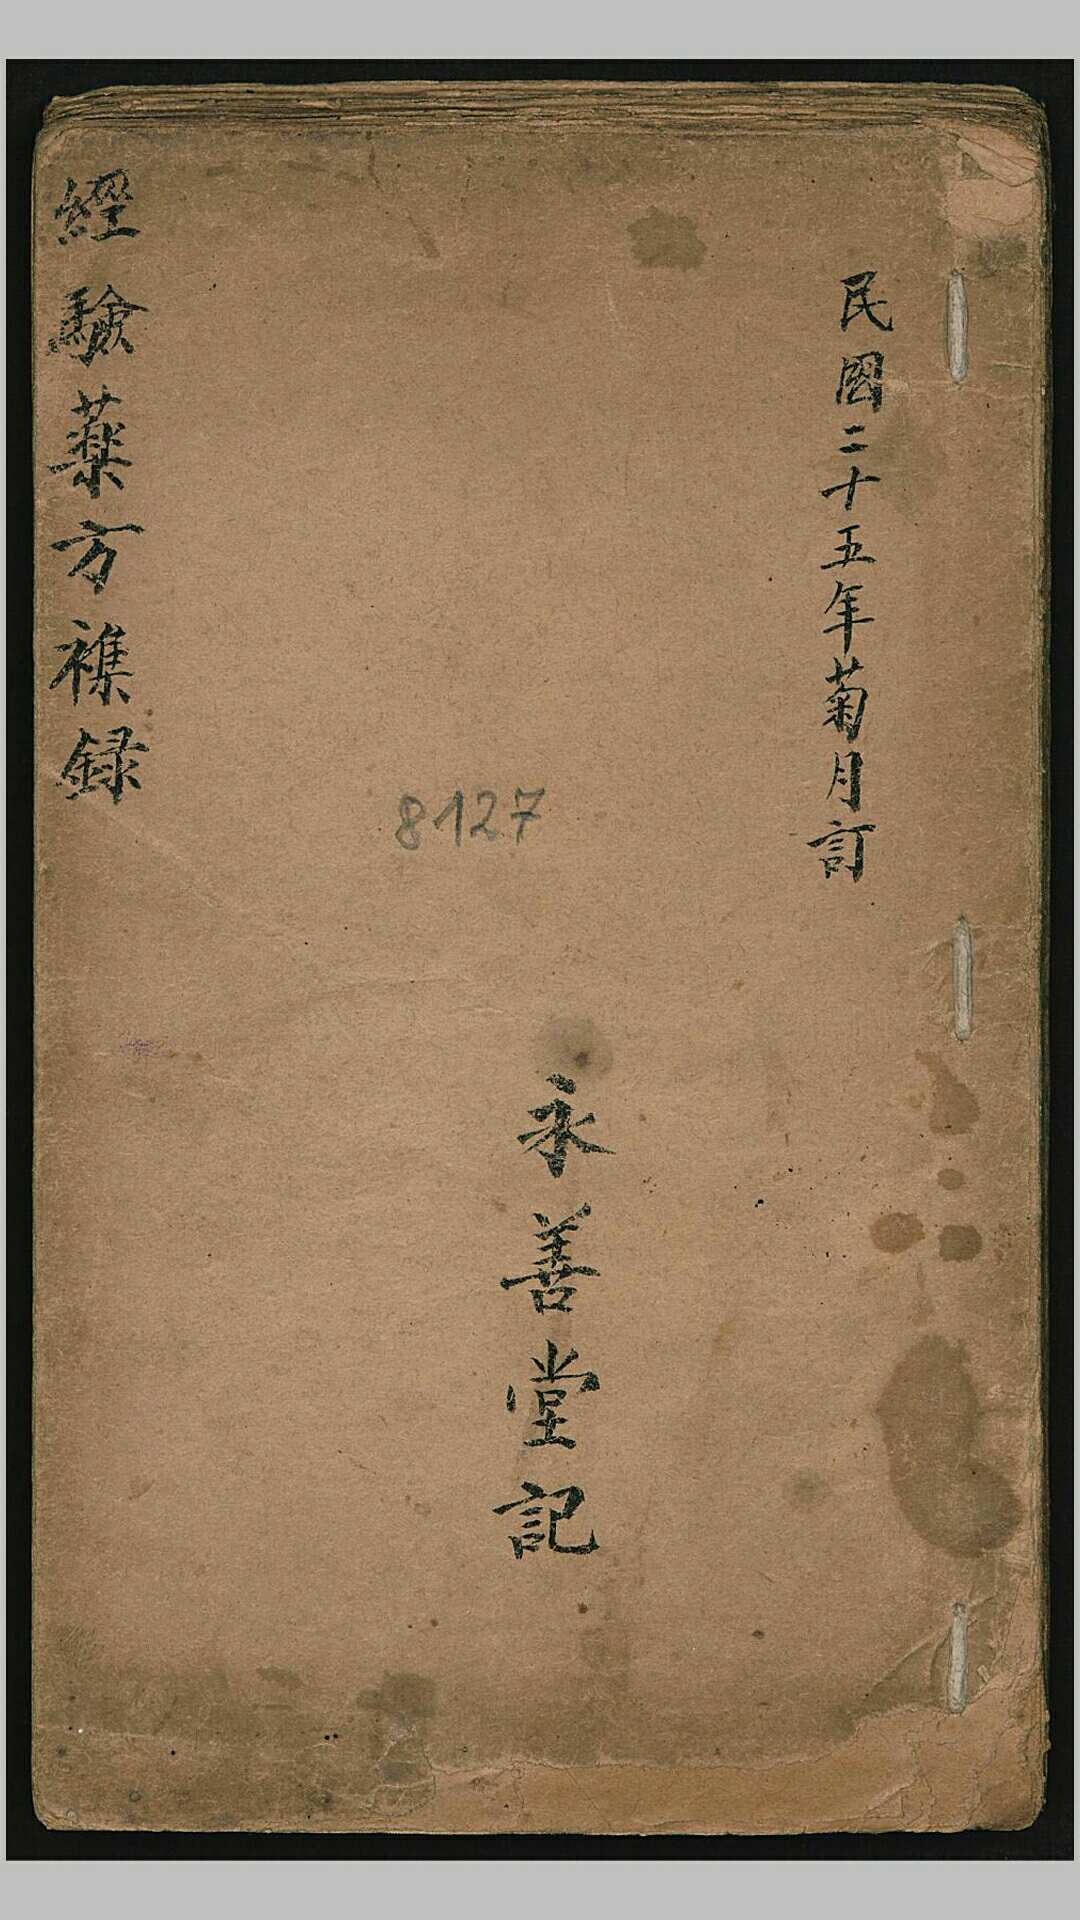 民國二十五年菊月訂
永善堂記
經驗藥方襍録
8127